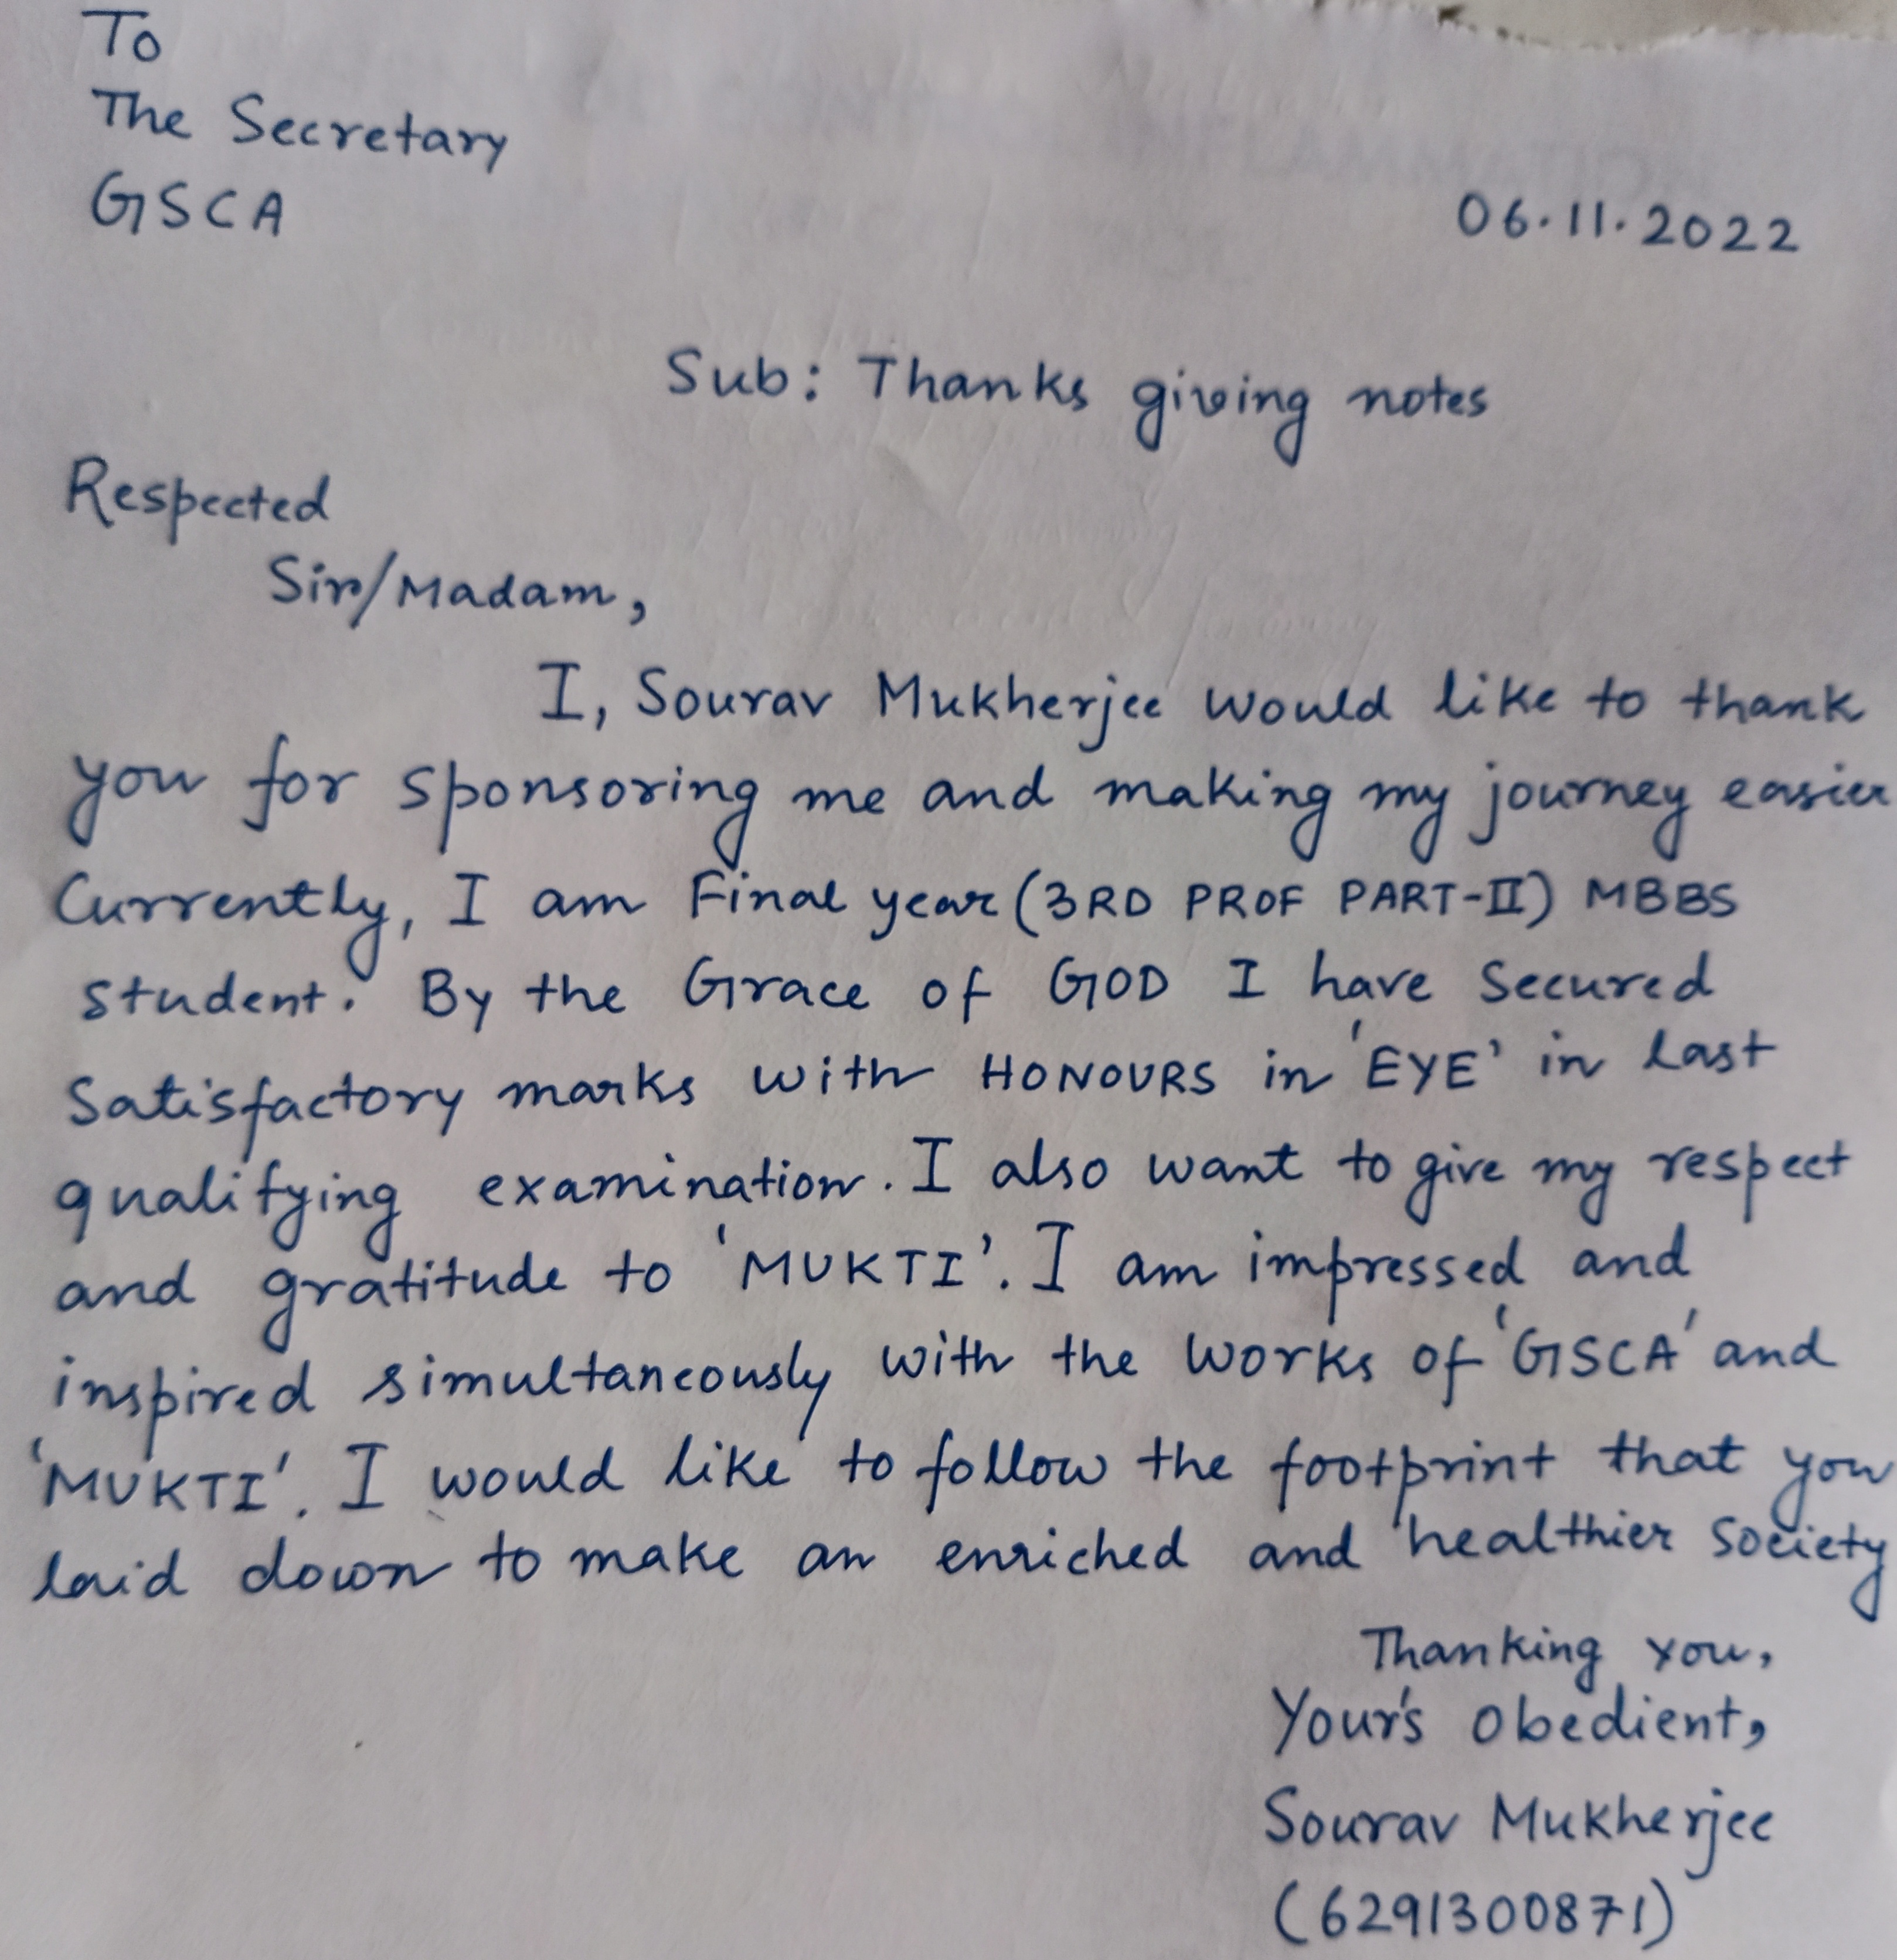 To
The Secretary
GSCA
06.11.2022
Sub: Thanks giving notes
Respected
Sir/Madam,
I, Sourav Mukherjee would like to thank
you for sponsoring me and making my journey easier
Currently, I am Final year (3RD PROF PART-II) MBBS
student. By the Grace of GOD I have secured
Satisfactory marks with HONOURS in 'EYE' in last
qualifying examination. I also want to give my respect
and gratitude to 'MUKTI'. I am impressed and
inspired simultaneously with the works of 'GSCA' and
'MUKTI'. I would like to follow the footprint that you
laid down to make an enriched and healthier society
Thanking you,
Your's obedient,
Sourav Mukherjee
(6291300871)